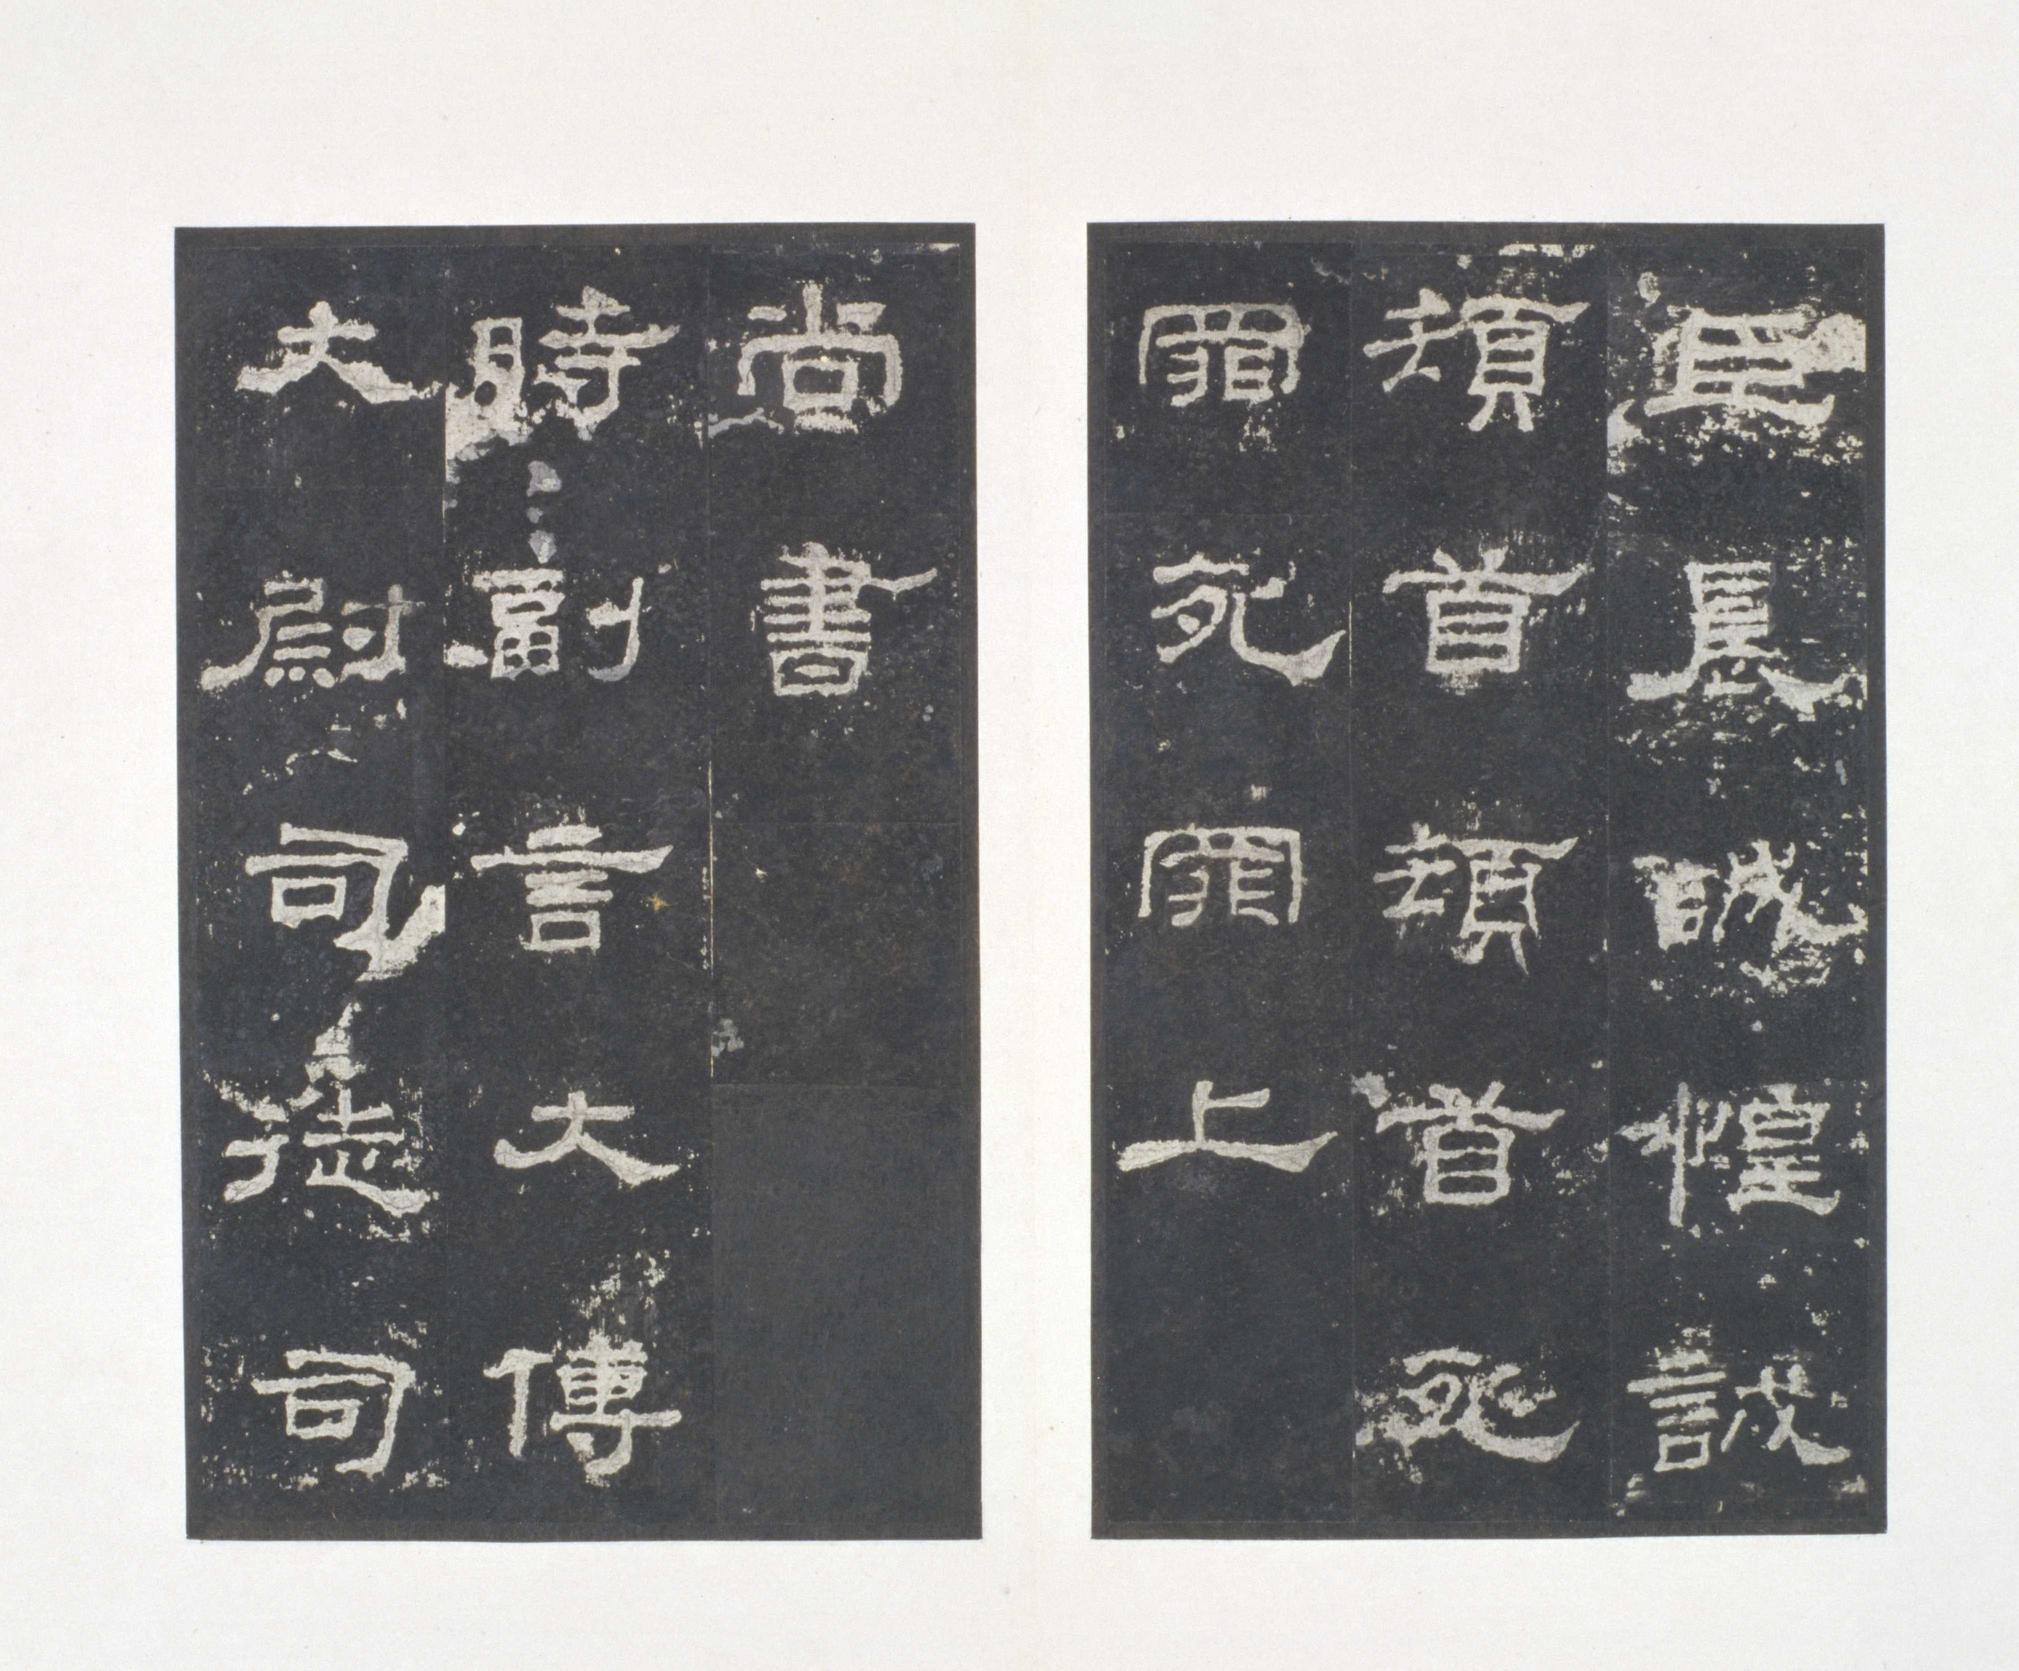 臣晨誠惶誠
頓首頓首死
罪死罪上
尚書
時副言大傅
大尉司徒司